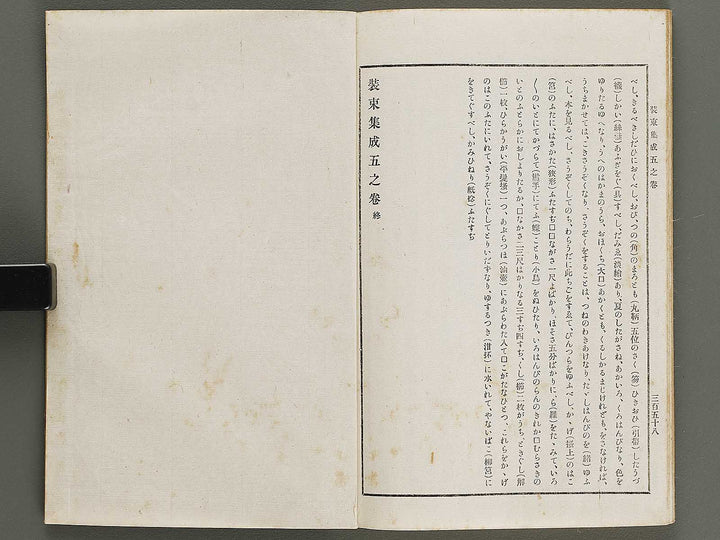 裝束集成五之卷
三百五十八
べし、きるべきしだひにおくべし、おび、つの(角)のまろとも(丸鞆)五位のさく(笏)ひきおひ(引帶)したうづ
(襪)しかい(絲鞋)あふぎをぐ(具)すべし、だみゑ(淡繪)あり、夏のしたがさね、あかいろ、くろはんびなり、色を
ゆりたるゆへなり、うへのはかまのうら、おほくち(大口)あかくとも、くるしかるまじけれども、をさなければ、
うちまかせては、こきさうぞくなり、さうぞくをすることは、つねのわきあけなり、たゞしはんびのを(緒)ゆふ
べし、本を見るべし、さうぞくしてのち、わらうだに此ちごをすゑて、びんつらをゆふべし、かゝげ(掻上)のはこ
(筥)のふたに、はさかた(狹形)ふたすぢ口口ながさ一尺よばかり、ほそさ五分ばかりに、ら(羅)をたゝみて、いろ
〳〵のいとにてかづらて(鬘手)にてふ(蝶)ことり(小鳥)をぬひたり、いろはんびのらんのきれか口むらさきの
いとのふとらかにおしよりたるか、口なかさ二三尺はかりなる三すぢ四すぢ、くし(櫛)二枚がうち、ときぐし(解
櫛)二枚、ひらかうがい(平髮掻)一つ、あぶらつぼ(油壺)にあぶらわた入て口こがたなひとつ、これらをかゝげ
のはこのふたにいれて、さうぞくにぐしてとりいだすなり、ゆするつき(泔坏)に水いれて、やないばこ(柳筥)に
をきてぐすべし、かみひねり(紙捻)ふたすぢ
裝束集成五之卷 終